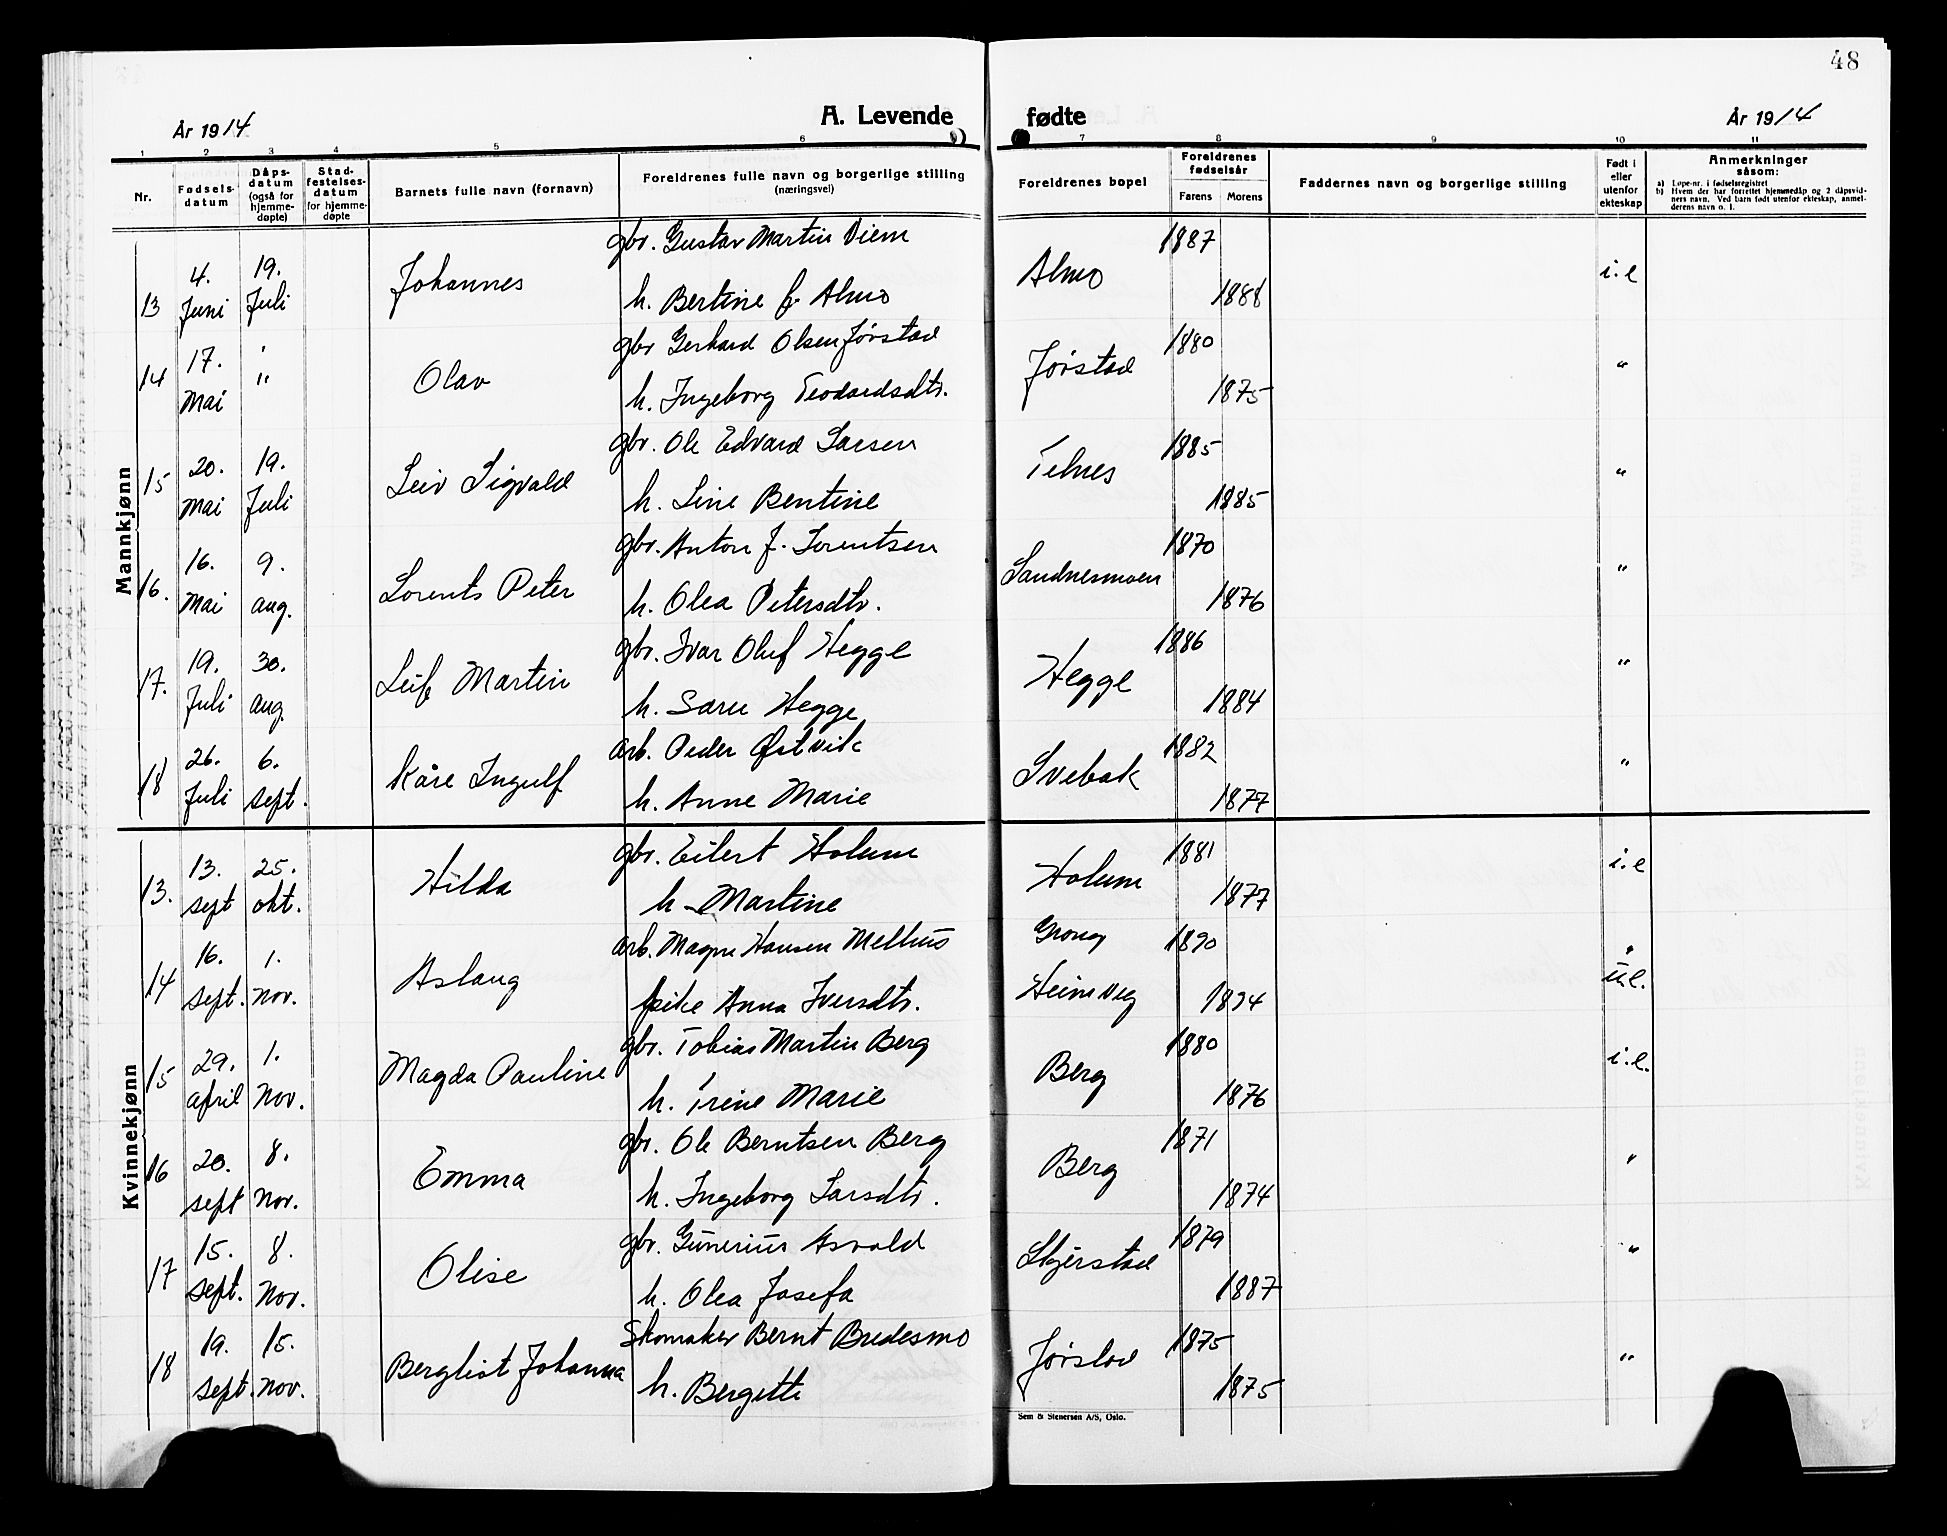 48
År 1914
A. Levende
fødte
År 1914
1 2 3 4 5 6 7 8 9 10 11
Nr.
Fødsels-
datum
Dåps-
datum
(også for
hjemme-
døpte)
Stad-
festelses-
datum
for hjemme-
døpte
Barnets fulle navn (fornavn)
Foreldrenes fulle navn og borgerlige stilling
(næringsvei)
Foreldrenes bopel
Foreldrenes
fødselsår
Farens Morens
Faddernes navn og borgerlige stilling
Født i
eller
utenfor
ekteskap
Anmerkninger
såsom:
a) Løpe-nr. i fødselsregistret
b) Hvem der har forrettet hjemmedåp og 2 dåpsvid-
ners navn. Ved barn født utenfor ekteskap, anmel-
derens navn o. l.
Mannkjønn
gbr. Gustav Martin Viem 1887
13 4. Juni 19. Juli Johannes Almo i.e
h. Bertine f. Almo 1888
gbr Gerhard Olsen Jørstad 1880
14 17. Mai " Olav Jørstad "
h. Ingeborg Teodardsdtr. 1875
gbr. Ole Edvard Larsen 1885
15 20. Mai 19. Juli Leiv Sigvald Telnes "
h. Line Bentine 1885
gbr. Anton J. Lorentsen 1870
16. 16. Mai 9. aug. Lorents Peter Sandnesmoen "
h. Olea Petersdtr. 1876
gbr. Ivar Oluf Hegge 1886
17. 19. Juli 30. aug. Leif Martin Hegge "
h. Sara Hegge 1884
arb. Peder Østvik 1882
18 26. Juli 6. sept. Kåre Ingulf Svebak "
h. Anne Marie 1877
Kvinnekjønn
gbr. Eilert Holum 1881
13. 13. sept 25. okt. Hilda Holum i.e
h. Martine 1877
arb. Magne Hansen Mellius Grong 1890
14 16. sept. 1. nov. Aslaug u.e.
pike Anna Iversdtr. Heimveg 1894
gbr. Tobias Martin Berg 1880
15 29. april 1. Nov. Magda Pauline Berg i.e.
h. Irene Marie 1876
gbr. Ole Berntsen Berg 1871
16 20. sept 8. Nov. Emma Berg "
h. Ingeborg Larsdtr. 1874
gbr. Gunerius Asvold 1879
17 15. sept. 8. Nov. Olise Skjerstad "
h. Olea Josefa 1887
Skomaker Bernt Bredesmo 1875
18 19. sept. 15. nov. Bergliot Johanna Jørstad "
h. Bergitte 1875
Sem & Stenersen A/S, Oslo.